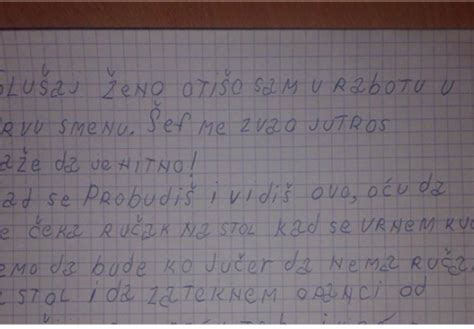 SLUŠAJ ŽENO OTIŠO SAM U RABOTU U
RVU SMENU. ŠEF ME ZVAO JUTROS
AŽE DA JE HITNO!
AD SE PROBUDIŠ I VIDIŠ OVO, OĆU DA
E ČEKA RUČAK NA STOL KAD SE VRNEM KU
EMO DA BUDE KO JUČER DA NEMA RUČA
A STOL I DA ZATEKNEM OPANCI OD